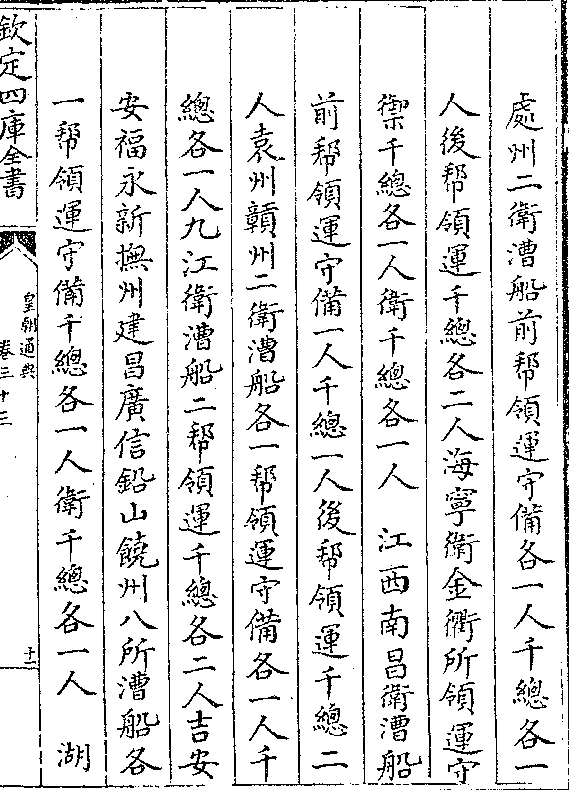 處州二衛漕船前帮領運守備各一人千總各一
人後帮領運千總各二人海寧衛金衢所領運守
禦千總各一人衛千總各一人　江西南昌衛漕船
前帮領運守備一人千總一人後帮領運千總二
人袁州贛州二衛漕船各一帮領運守備各一人千
總各一人九江衛漕船二帮領運千總各二人吉安
安福永新撫州建昌廣信鉛山饒州八所漕船各
一帮領運守備千總各一人衛千總各一人　湖
欽定四庫全書
皇朝通典
卷三十三
十二